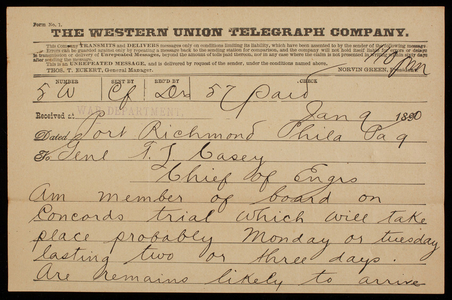 Form No. 1.
THE WESTERN UNION TELEGRAPH COMPANY.
This Company TRANSMITS and DELIVERS messages only on conditions limiting its liability, which have been assented to by the sender of the following message.
Errors can be guarded against only by repeating a message back to the sending station for comparison, and the company will not hold itself liable for errors or delays
in transmission or delivery of Unrepeated Messages,
after sending the message.
This is an UNREPEATED MESSAGE, and is delivered by request of the sender, under the conditions named above.
THOS. T. ECKERT, General Manager. NORVIN GREEN, President.
NUMBER SENT BY REC'D BY CHECK
5 W Cf Dn 57 Paid
WAR DEPARTMENT
Received at Jan 9 1890
Dated Port Richmond Phila Pa 9
To Genl T. L Casey
Chief of Engrs
Am member of board on
Concords trial which will take
place probably Monday or tuesday
lasting two or three days.
Are remains likely to arrive